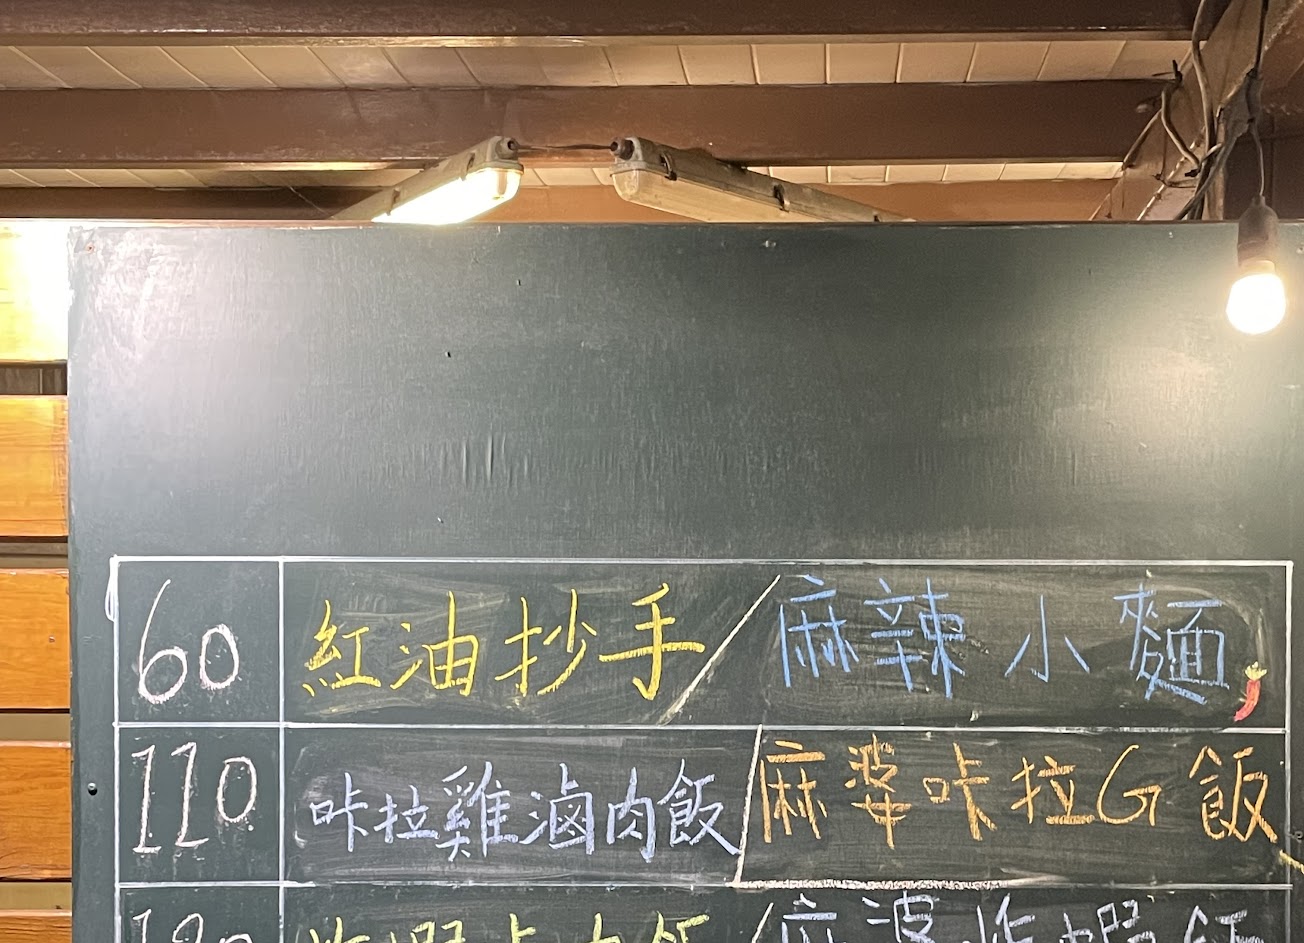 60 紅油抄手/麻辣小麵
110 咔拉雞滷肉飯/麻婆咔拉G飯